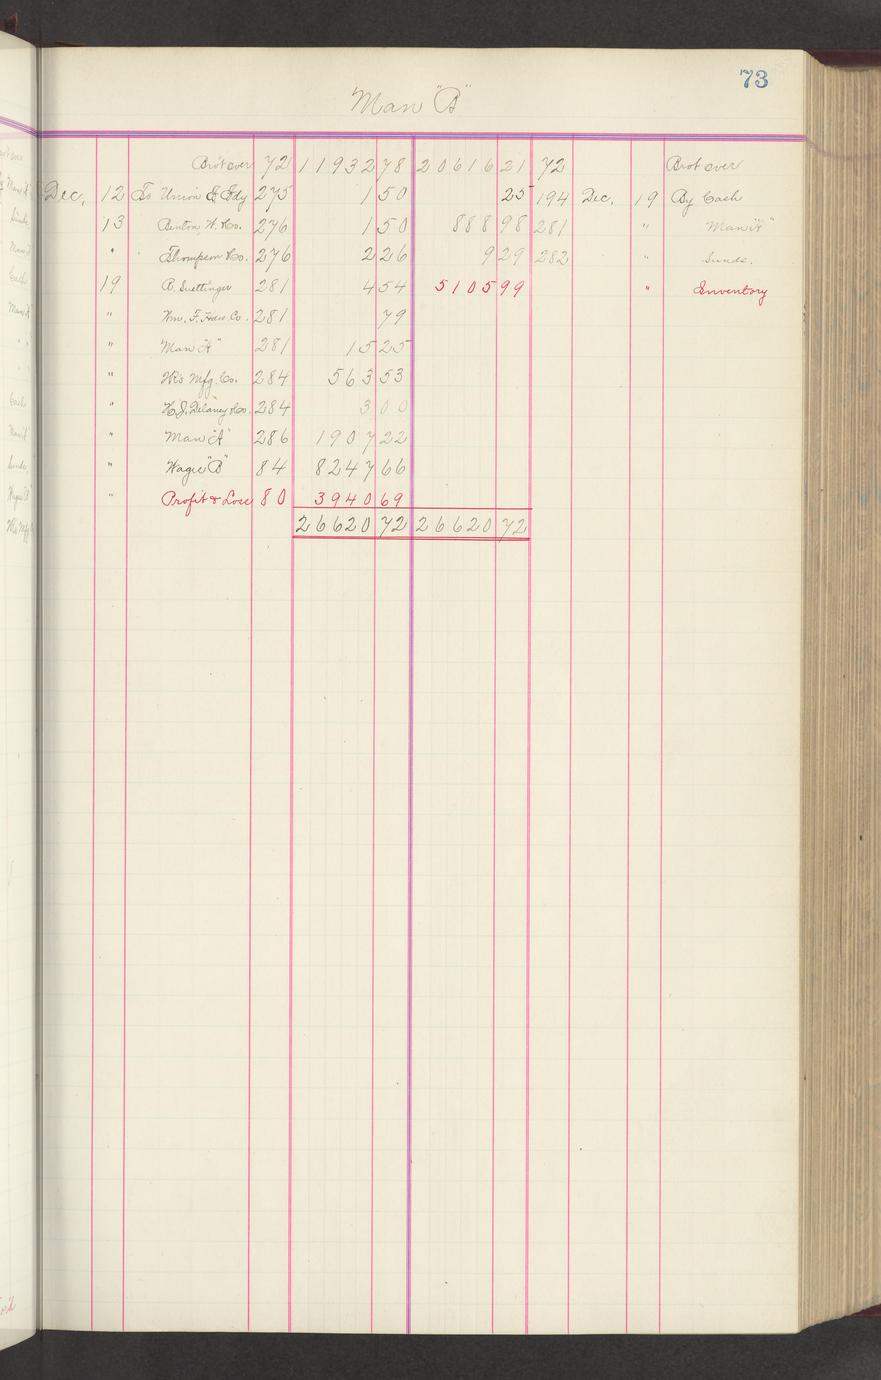 73
Man "B"
Bro't over 72 11932 78 20616 21 72 Brot over
Dec. 12 To Union E Edy 275 1 50 25 194 Dec. 19 By Cash
13 Benton H. Co. 276 1 50 888 98 281 " Man "A"
" Thompson & Co. 276 2 26 9 29 282 " Sunds.
19 A. Suettinger 281 4 54 5105 99 " Inventory
" Wm. F. Co. 281 79
" Man "A" 281 15 25
" Mfg. Co. 284 563 53
" H.J. Delaney & Co. 284 3 00
" Man "A" 286 1907 22
" Wages "B" 84 8247 66
" Profit & Loss 80 3940 69
26620 72 26620 72